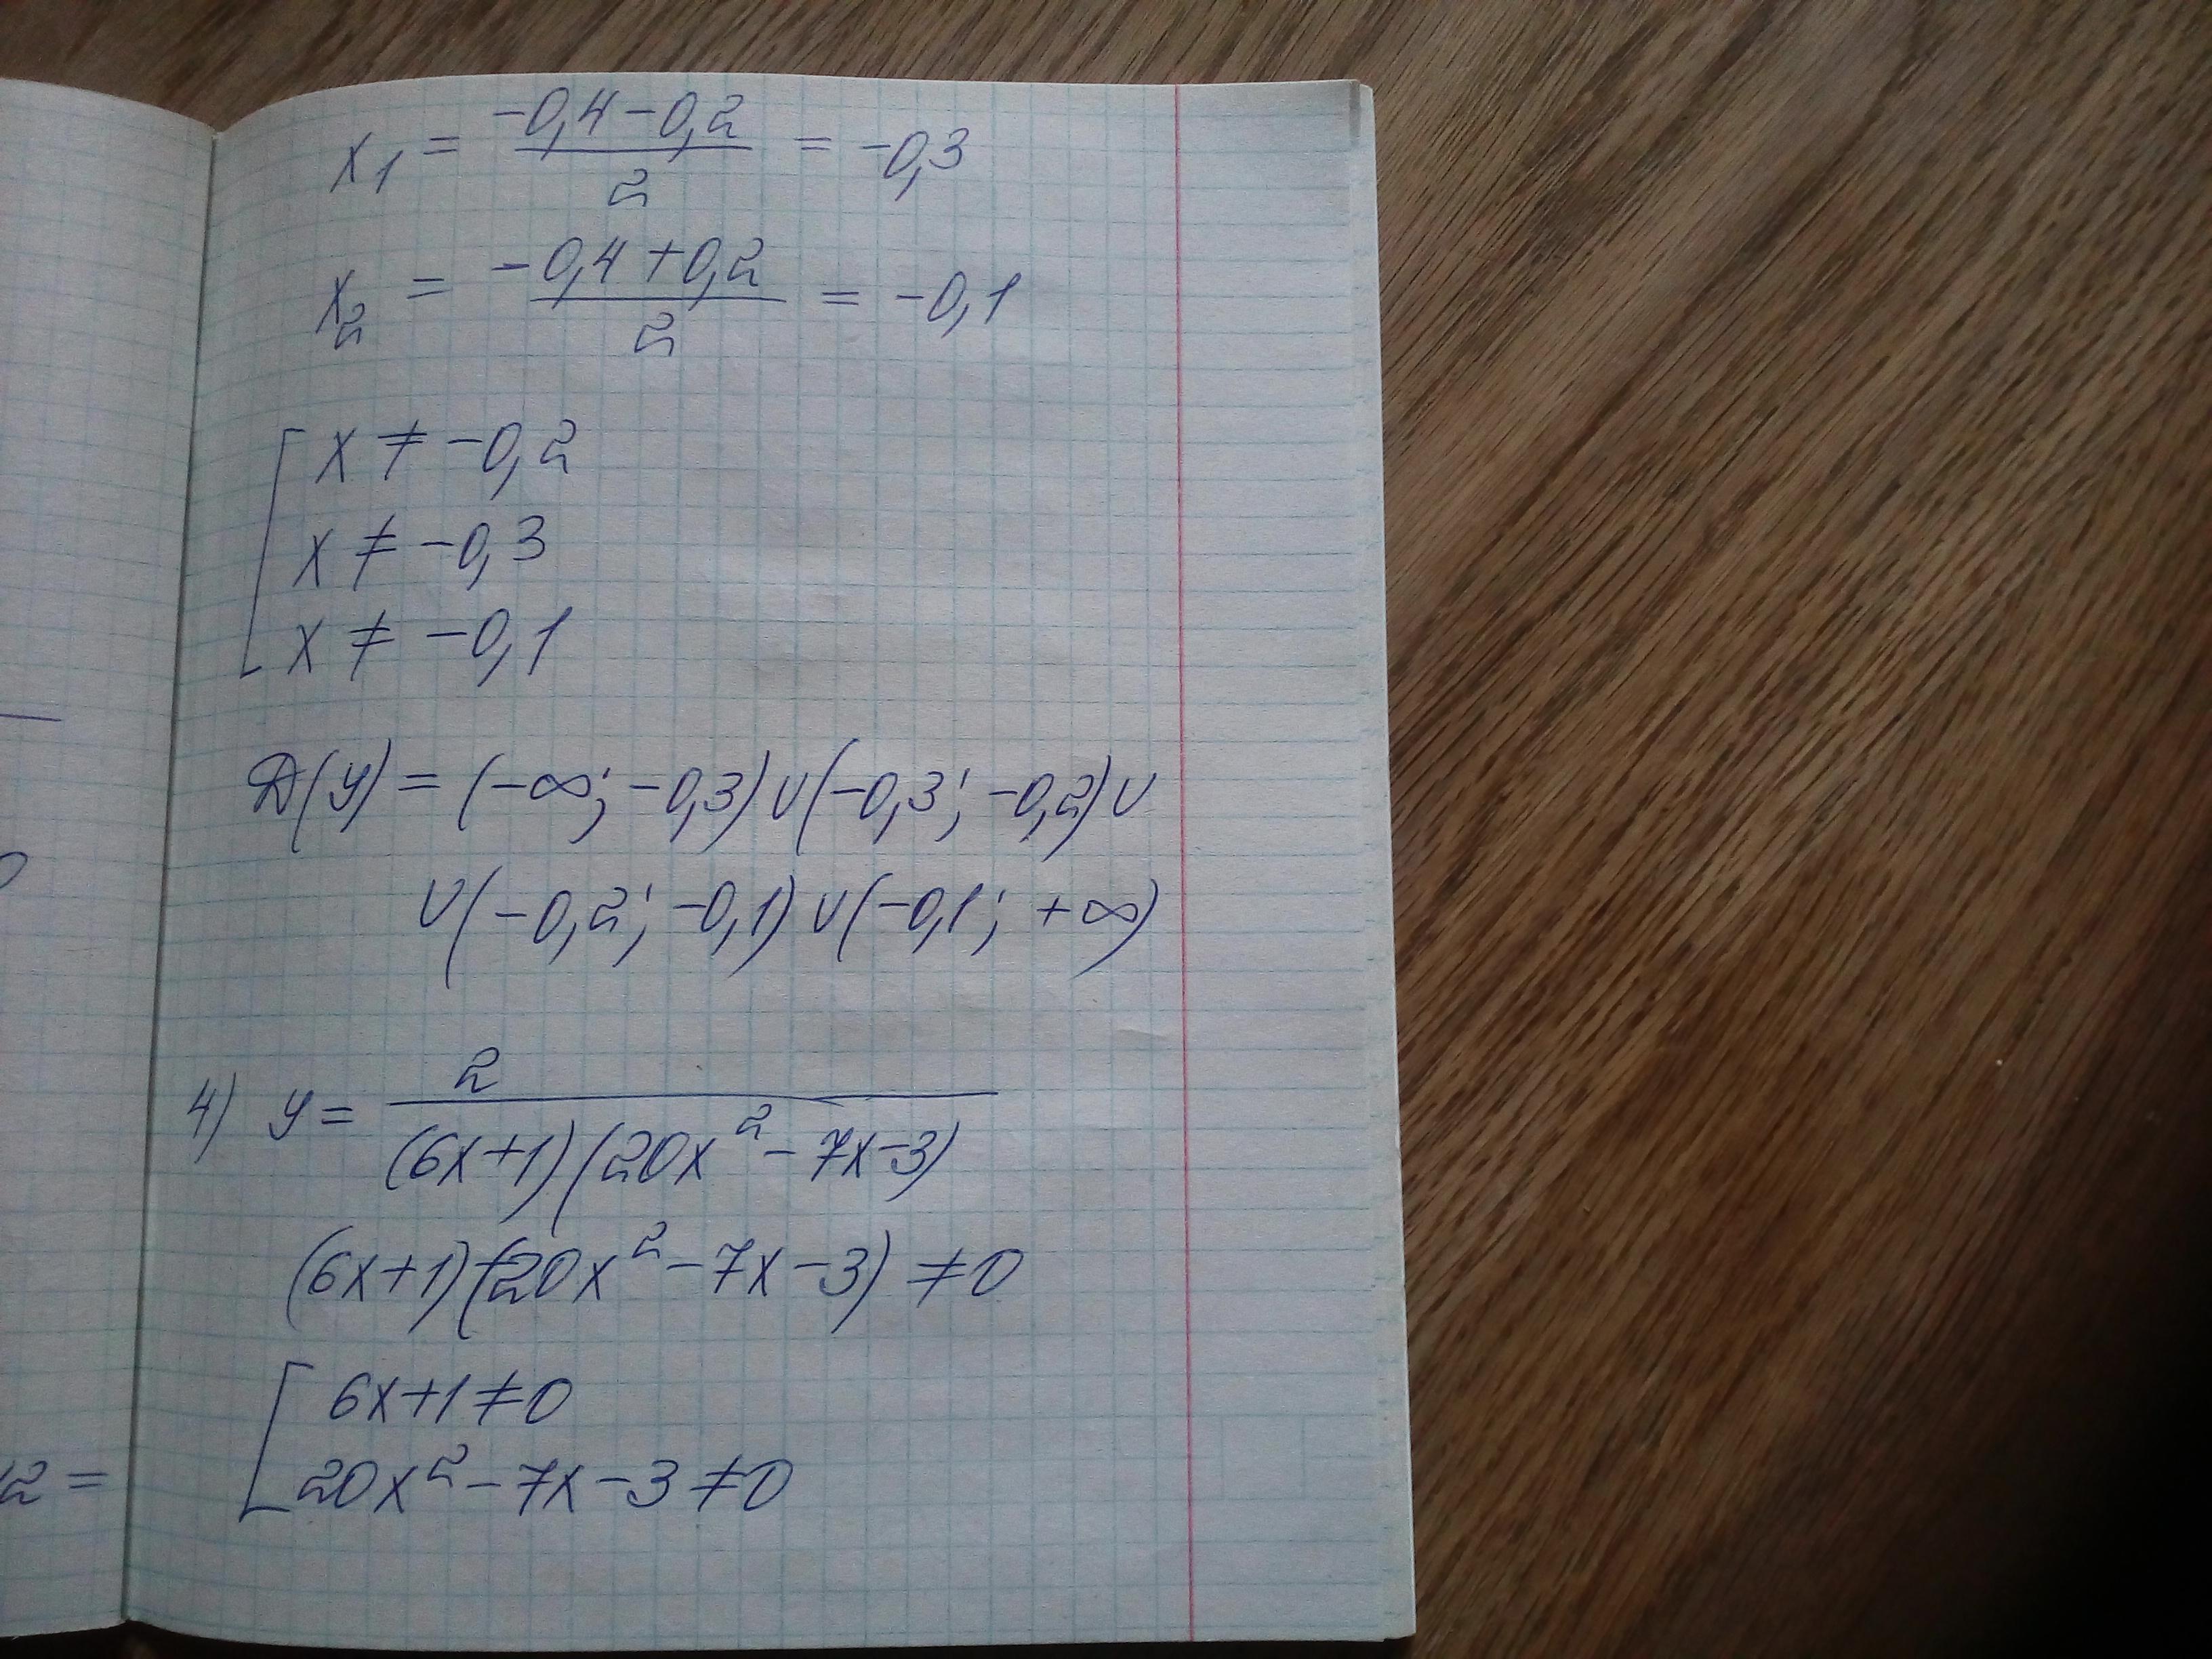 x₁ = (-0,4-0,2)/2 = -0,3
x₂ = (-0,4+0,2)/2 = -0,1
[ x ≠ -0,2
x ≠ -0,3
x ≠ -0,1
D(y) = (-∞; -0,3)∪(-0,3; -0,2)∪
∪(-0,2; -0,1)∪(-0,1; +∞)
4) y = 2/((6x+1)(20x²-7x-3))
(6x+1)(20x²-7x-3) ≠0
[ 6x+1≠0
20x²-7x-3≠0
2 =